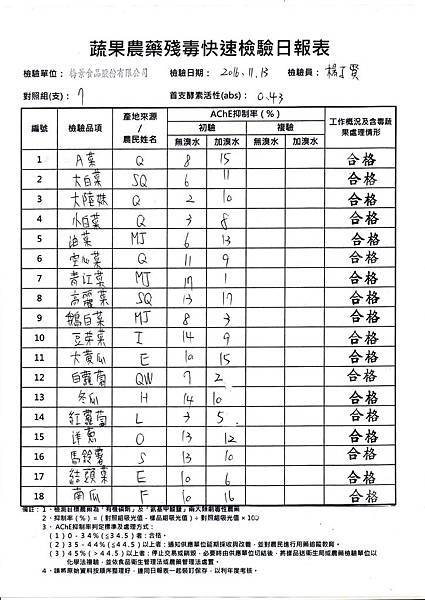 蔬果農藥殘毒快速檢驗日報表
檢驗單位： 裕景食品股份有限公司 檢驗日期： 2016.11.13 檢驗員：
對照組(支)： 7 首支酵素活性(abs)： 0.43
編號 檢驗品項 產地來源/農民姓名 AChE抑制率(%) 工作概況及含毒蔬果處理情形
初驗 複驗
無溴水 加溴水 無溴水 加溴水
1 A菜 Q 8 15 合格
2 大白菜 SQ 6 11 合格
3 大陸妹 Q 2 10 合格
4 小白菜 Q 3 8 合格
5 油菜 MJ 6 13 合格
6 空心菜 Q 11 9 合格
7 青江菜 MJ 17 1 合格
8 高麗菜 SQ 13 17 合格
9 鵝白菜 MJ 8 3 合格
10 豆芽菜 I 14 9 合格
11 大黃瓜 E 10 15 合格
12 白蘿蔔 QW 7 2 合格
13 冬瓜 H 14 10 合格
14 紅蘿蔔 L 3 5 合格
15 洋蔥 O 13 12 合格
16 馬鈴薯 S 13 10 合格
17 結頭菜 E 10 6 合格
18 南瓜 F 10 16 合格
備註：1、檢測目標農藥為"有機磷劑"及"氨基甲酸鹽"兩大類劇毒性農藥
2、抑制率(%)=(對照組吸光值-樣品組吸光值)÷對照組吸光值×100
3、AChE抑制率判定標準及處理方式：
(1) 0-34%(≦34.5)者：合格。
(2) 35-44%(≦44.5)以上者：通知供應單位延期採收與改善，並對農民進行用藥追蹤教育。
(3) 45%(>44.5)以上者：停止交易或銷毀，必要時由供應單位切結後，將樣品送衛生局或農藥檢驗單位以
化學法複驗，並依食品衛生管理法或農藥管理法處置。
4、請將原始資料按順序整理好，連同日報表一起裝訂保存，以利年度考核。